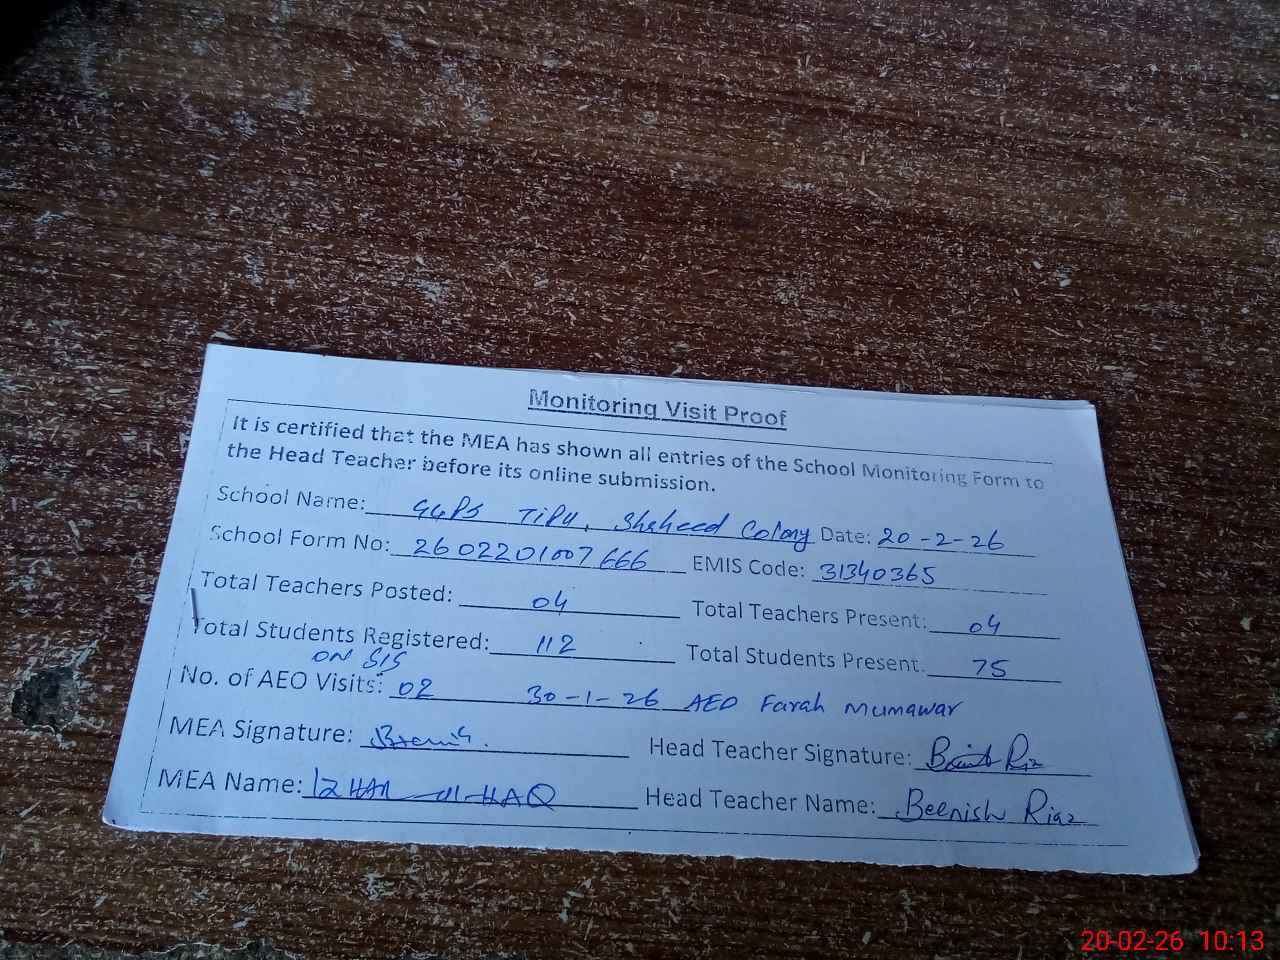 Monitoring Visit Proof
It is certified that the MEA has shown all entries of the School Monitoring Form to
the Head Teacher before its online submission.
School Name: GGPS TiPU, Shaheed Colony Date: 20-2-26
School Form No: 2602201007666 EMIS Code: 31340365
Total Teachers Posted: 04 Total Teachers Present: 04
Total Students Registered: 112 Total Students Present: 75
ON SIS
No. of AEO Visits: 02 30-1-26 AEO Farah Mumawar
MEA Signature: Head Teacher Signature:
MEA Name: IZHAR-ul-HAQ Head Teacher Name: Beenish Riaz
20-02-26 10:13